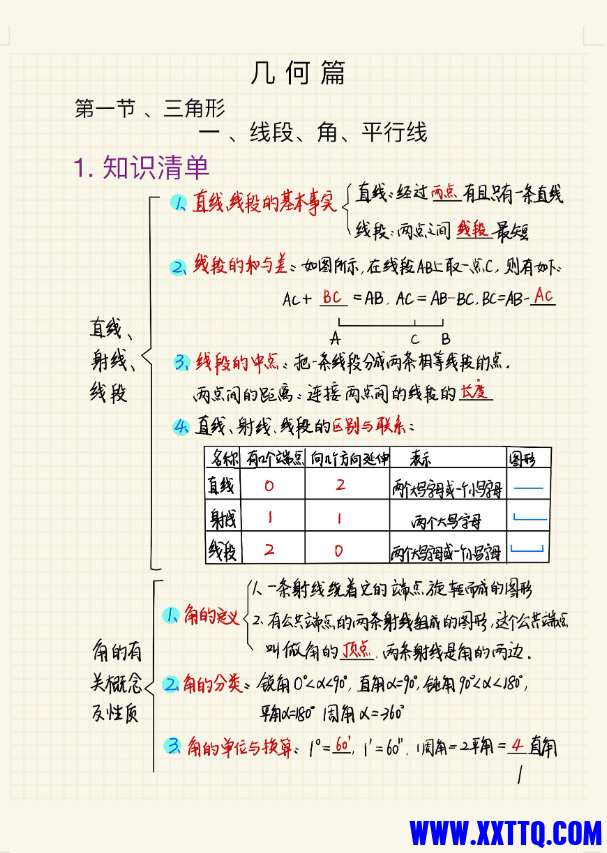 几何篇
第一节、三角形
一、线段、角、平行线
1. 知识清单
直线、射线、线段
1、直线、线段的基本事实
直线:经过两点有且只有一条直线
线段:两点之间线段最短
2、线段的和与差:如图所示,在线段AB上取一点C,则有如下:
AC+BC=AB, AC=AB-BC, BC=AB-AC
A C B
3、线段的中点:把一条线段分成两条相等线段的点.
两点间的距离:连接两点间的线段的长度
4、直线、射线、线段的区别与联系:
名称 有几个端点 向几个方向延伸 表示 图形
直线 0 2 两个大写字母或一个小写字母
射线 1 1 两个大写字母
线段 2 0 两个大写字母或一个小写字母
角的有关概念及性质
1、角的定义
1、一条射线绕着它的端点旋转而成的图形
2、有公共端点的两条射线组成的图形,这个公共端点
叫做角的顶点,两条射线是角的两边.
2、角的分类:锐角0°<α<90°, 直角α=90°, 钝角90°<α<180°,
平角α=180° 周角α=360°
3、角的单位与换算:1°=60′, 1′=60″, 1周角=2平角=4直角
1
WWW.XXTTQ.COM